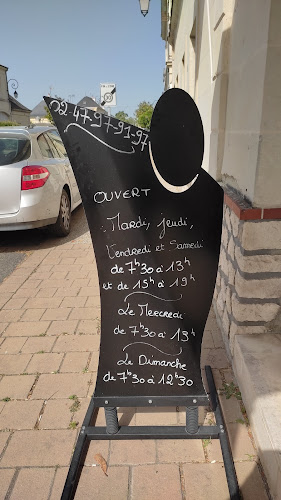 02-47-97-91-97
OUVERT
: Mardi, jeudi,
Vendredi et Samedi
de 7h30 à 13h
et de 15h à 19h
Le Mercredi
de 7h30 à 13h
Le Dimanche
de 7h30 à 12h30